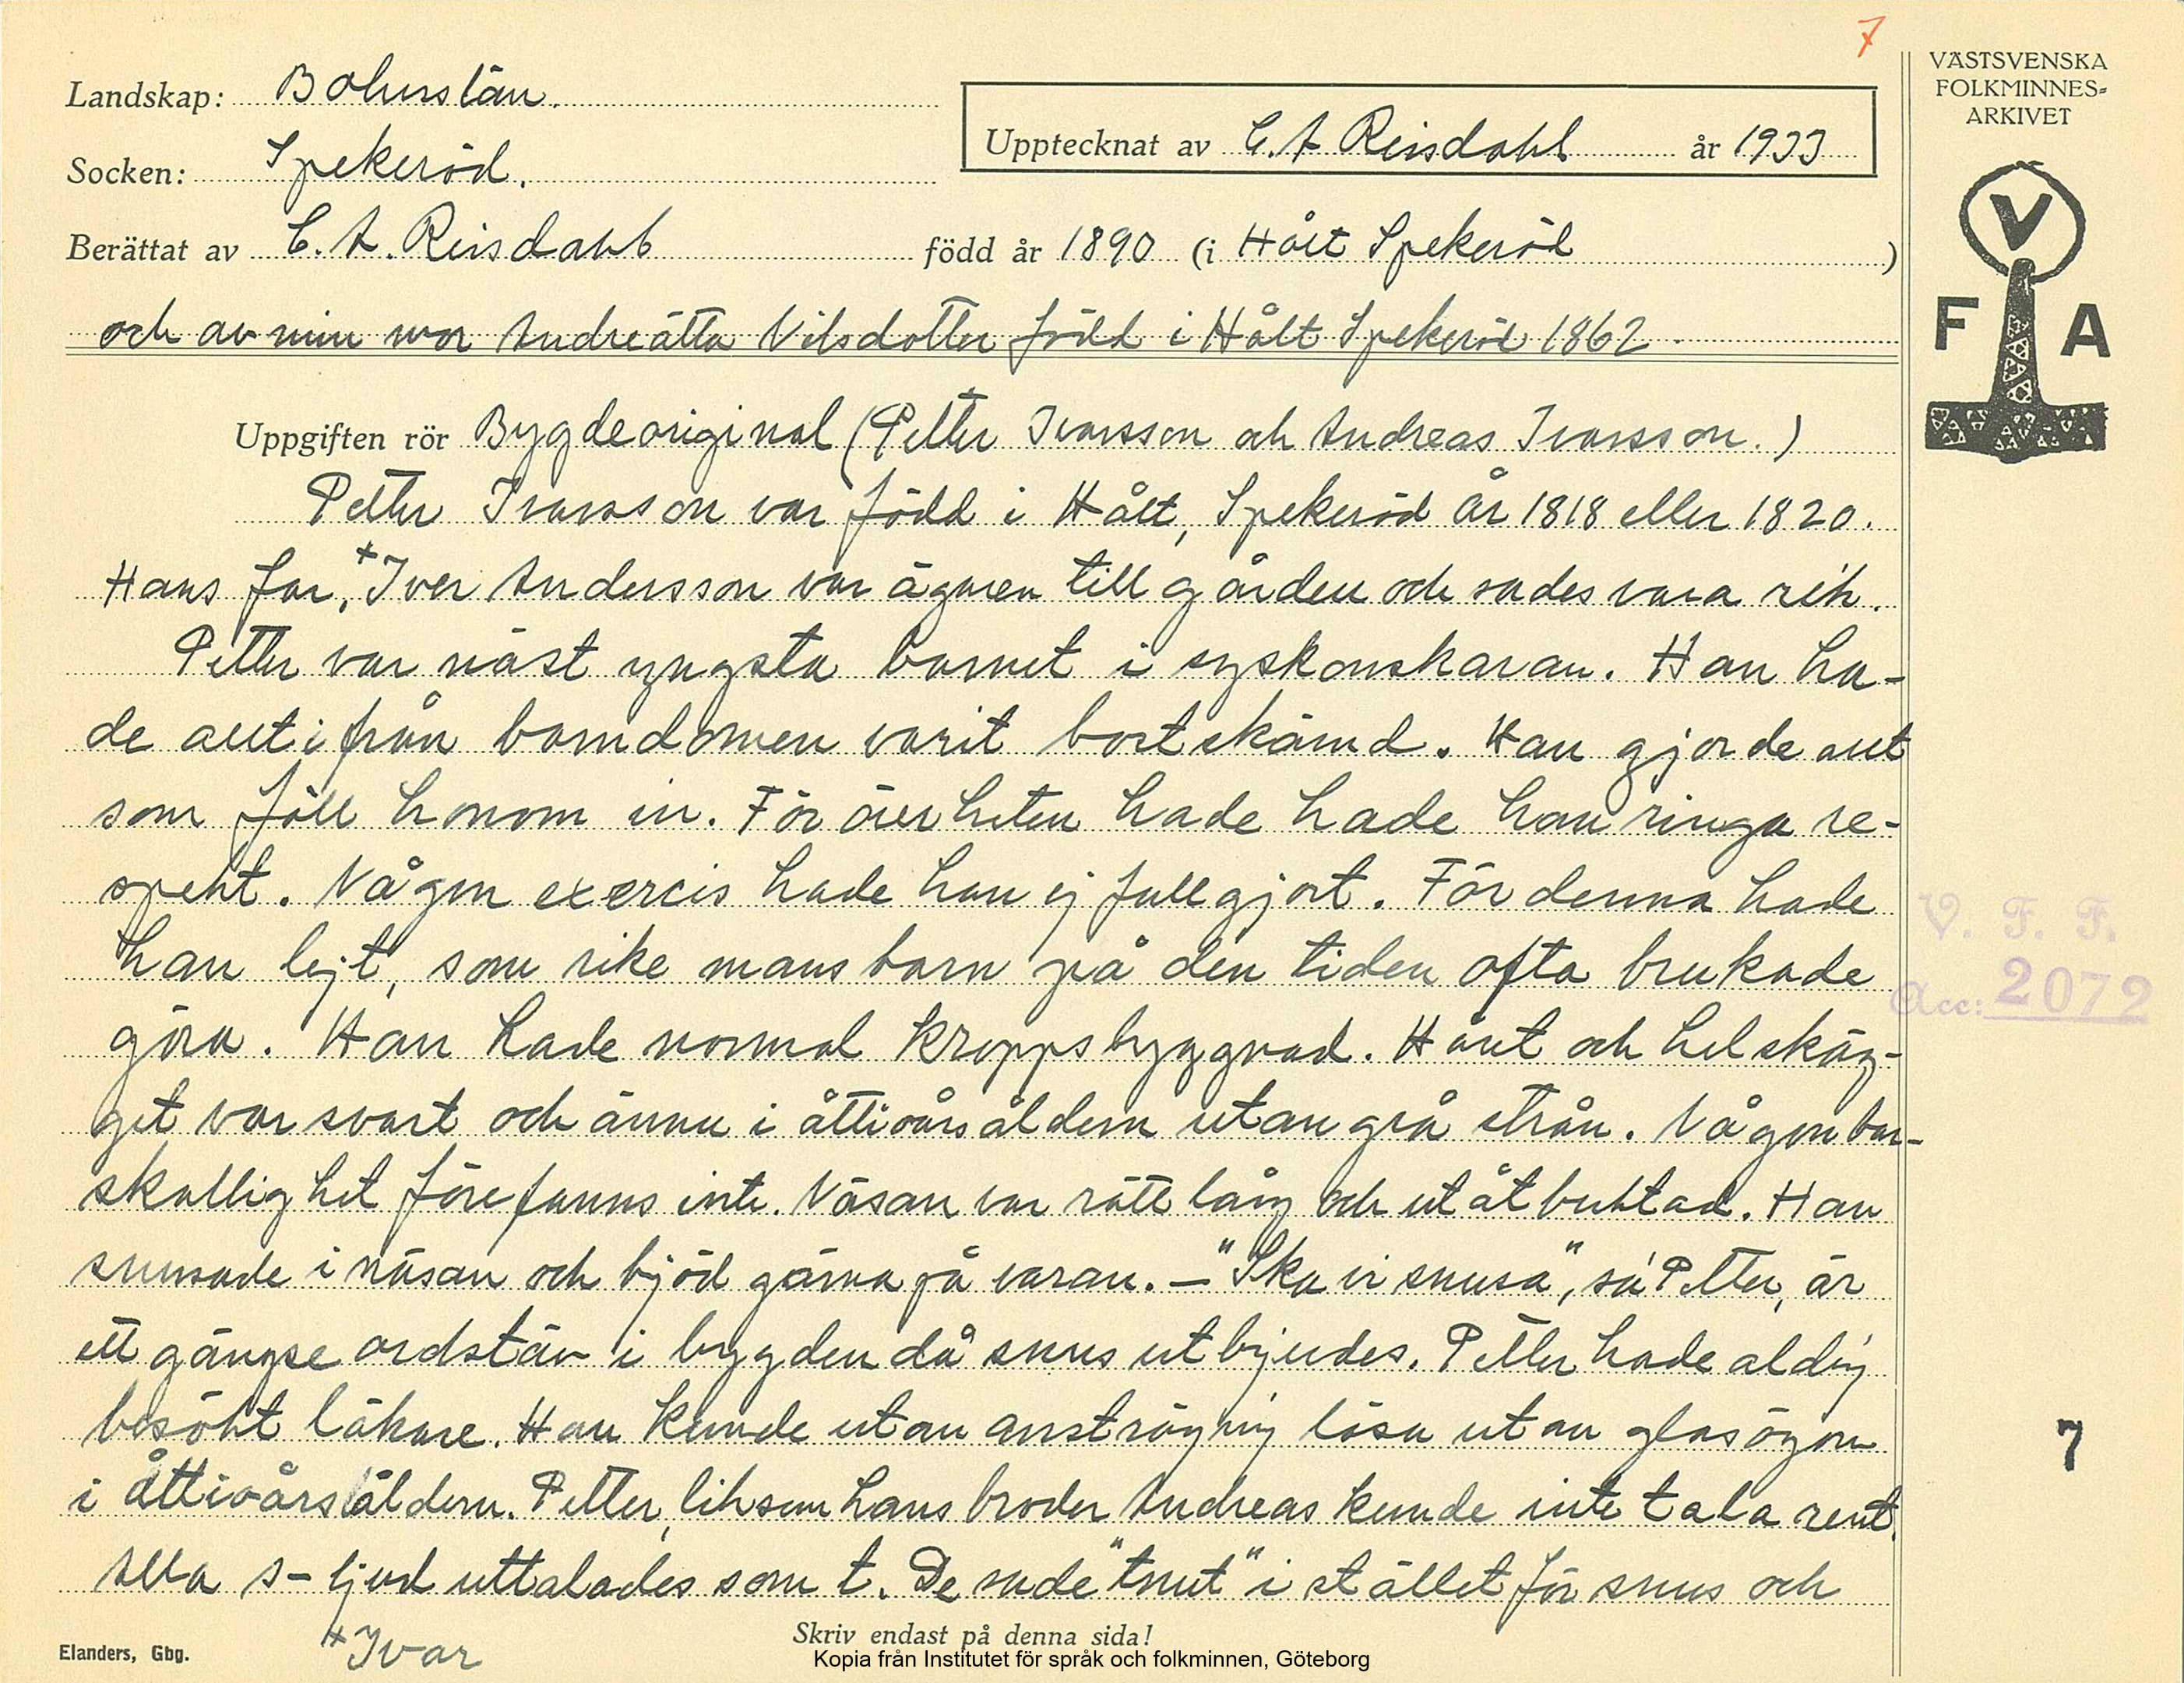 7
VÄSTSVENSKA
FOLKMINNES-
ARKIVET
Landskap: Bohuslän.
Upptecknat av C. A Reisdahl år 1933
Socken: Spekeröd.
Berättat av C. A. Reisdahl född år 1890 (i Hält Spekeröd )
och av min mor Andreätta Nilsdotter född i Hält Spekeröd 1862
V
F A
Uppgiften rör Bygdeoriginal (Petter Ivarsson och Andreas Ivarsson.)
Petter Ivarsson var född i Hält, Spekeröd år 1818 eller 1820.
Hans far, +Iver Andersson var ägaren till gården och sades vara rik.
Petter var näst yngsta barnet i syskonskaran. Han ha-
de allt ifrån barndomen varit bortskämd. Han gjorde allt
som föll honom in. För överheten hade hade han ringa re-
spekt. Någon exercis hade han ej fullgjort. För denna hade
han lejt, som rike mans barn på den tiden ofta brukade
göra. Han hade normal kroppsbyggnad. Håret och helskäg-
get var svart och ännu i åttioårsåldern utan grå strån. Någon bar-
skallighet förefanns inte. Näsan var rätt lång och utåtbuktad. Han
snusade i näsan och bjöd gärna på varan. – "Ska vi snusa", sa' Petter, är
ett gängse ordstäv i bygden då snus utbjudes. Petter hade aldrig
besökt läkare. Han kunde utan ansträgning läsa utan glasögon
i åttioårsåldern. Petter, liksom hans broder Andreas kunde inte tala rent.
Alla s-ljud uttalades som t. De sade "tnut" i stället för snus och
V. F. F.
Acc: 2072
7
+Ivar
Skriv endast på denna sida!
Elanders, Gbg.
Kopia från Institutet för språk och folkminnen, Göteborg